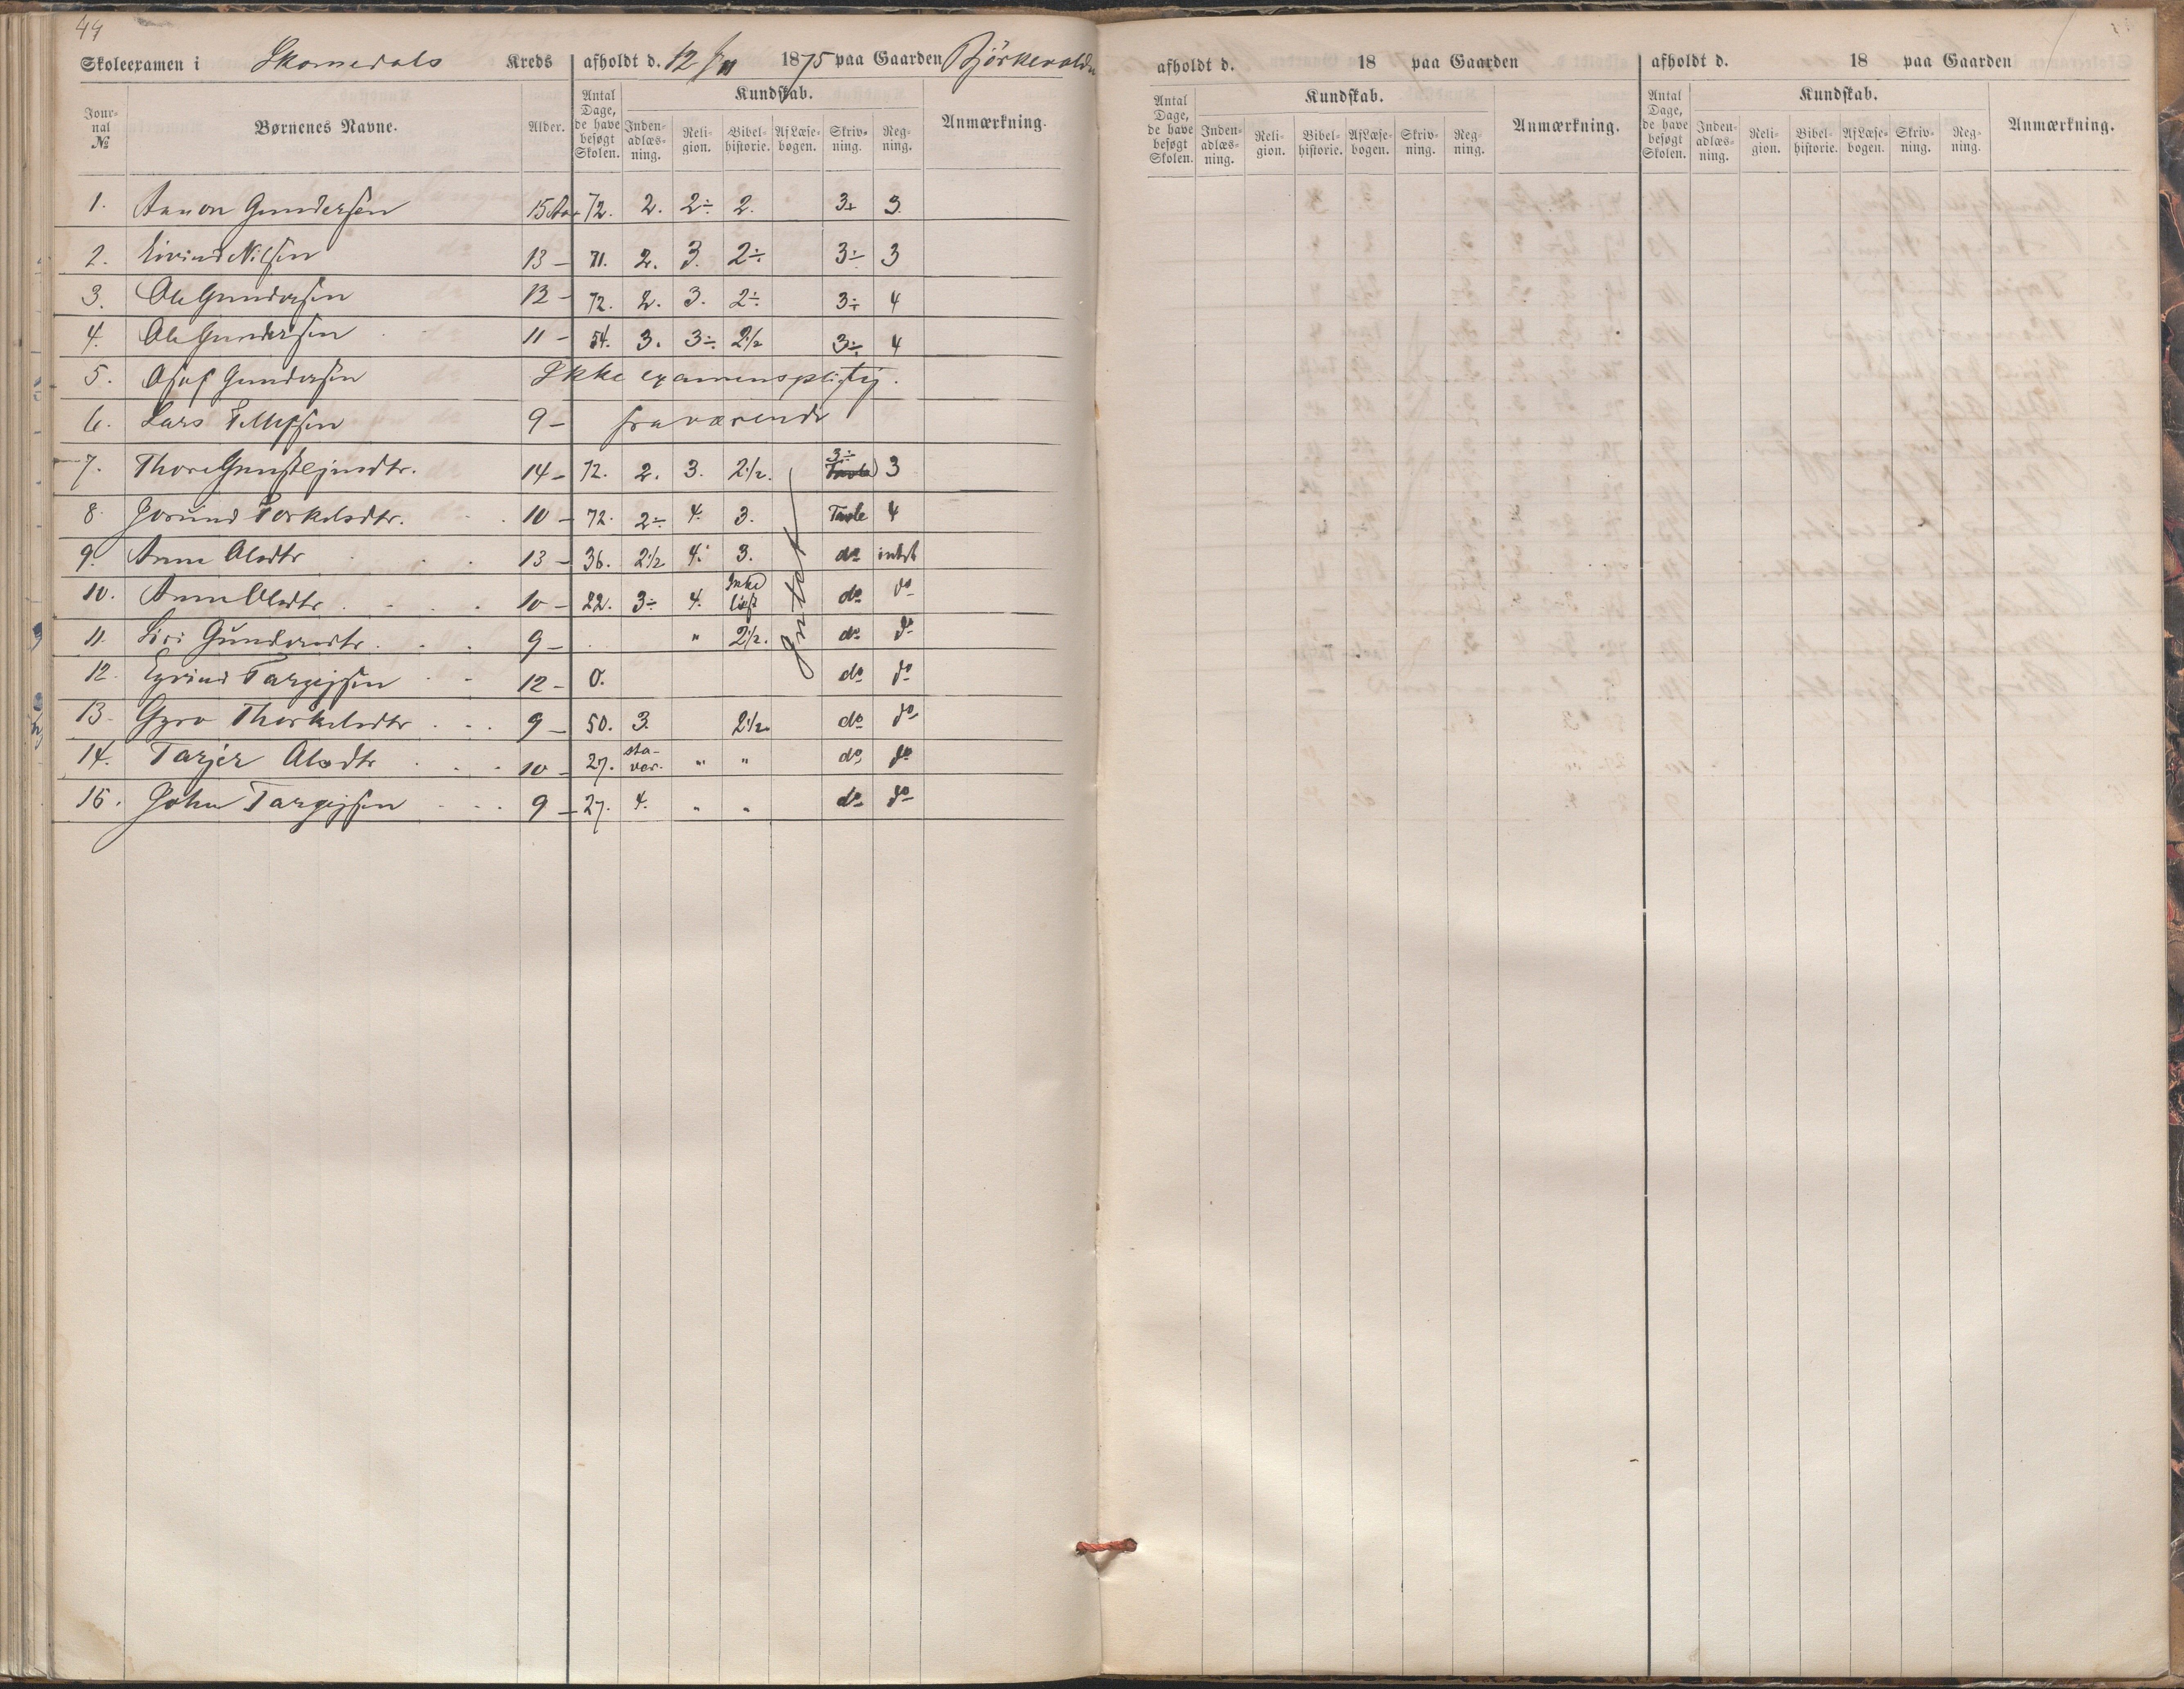 44
Skoleexamen i Skomedals Kreds afholdt d. 12/11 1875 paa Gaarden Björkevolden
Jour-nal № Børnenes Navne. Alder. Antal Dage, de have besøgt Skolen. Kundskab. Inden-adlæs-ning. Reli-gion. Bibel-historie. Af Læse-bogen. Skriv-ning. Reg-ning. Anmærkning.
1. Aanon Gundersen 15 Aar 72. 2. 2÷ 2. 3+ 3.
2. Eivind Nilsen 13 – 71. 2. 3. 2÷ 3÷ 3
3. Ole Gundersen 12 – 72. 2. 3. 2÷ 3÷ 4
4. Ole Gundersen 11 – 54. 3. 3÷ 2½ 3÷ 4
5. Olaf Gundersen Ikke examenspligtig.
6. Lars Tellefsen 9 – fraværende
7. Thore Gunsteinsdtr. 14 – 72. 2. 3. 2½. 3÷ Tavle 3
8. Jorund Torkelsdtr. 10 – 72. 2÷ 4. 3. Tavle 4
9. Anne Olsdtr 13 – 36. 2½ 4. 3. do intet
10. Anne Olsdtr 10 – 22. 3÷ 4. Ikke læst do do
11. Siri Gundersdtr. 9 – " 2½. do do
Intet
12. Eyvind Targejsen 12 – 0. do do
13. Gyro Thorkelsdtr 9 – 50. 3. 2½ do do
14. Tarjer Olsdtr 10 – 27. sta-ver. " " do do
15. John Targejsen 9 – 27. 4. " " do do
afholdt d. 18 paa Gaarden afholdt d. 18 paa Gaarden
Antal Dage, de have besøgt Skolen. Kundskab. Inden-adlæs-ning. Reli-gion. Bibel-historie. Af Læse-bogen. Skriv-ning. Reg-ning. Anmærkning. Antal Dage, de have besøgt Skolen. Kundskab. Inden-adlæs-ning. Reli-gion. Bibel-historie. Af Læse-bogen. Skriv-ning. Reg-ning. Anmærkning.